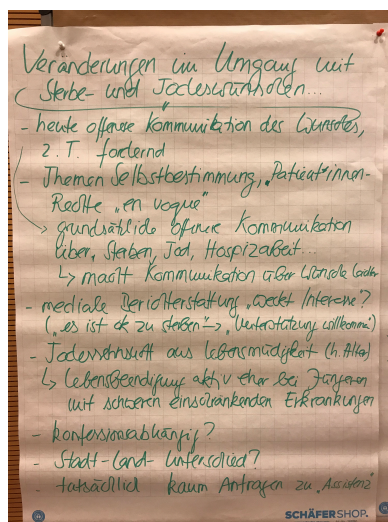 Veränderungen im Umgang mit
Sterbe- und Todeswünschen...
- heute offenere Kommunikation des Wunsches,
z. T. fordernd
- Themen Selbstbestimmung, "Patient*innen-
Rechte "en vogue"
→ grundsätzliche offenere Kommunikation
über Sterben, Tod, Hospizarbeit...
↳ macht Kommunikation über Wünsche leichter
- mediale Berichterstattung "weckt Interesse"?
("es ist ok zu sterben" → "Unterstützung willkommen")
- Todessehnsucht aus Lebensmüdigkeit (h. Alter)
↳ Lebensbeendigung aktiv eher bei Jüngeren
mit schweren einschränkenden Erkrankungen
- konfessionsabhängig?
- Stadt-Land-Unterschied?
- tatsächlich kaum Anfragen zu "Assistenz"
SCHÄFER SHOP.